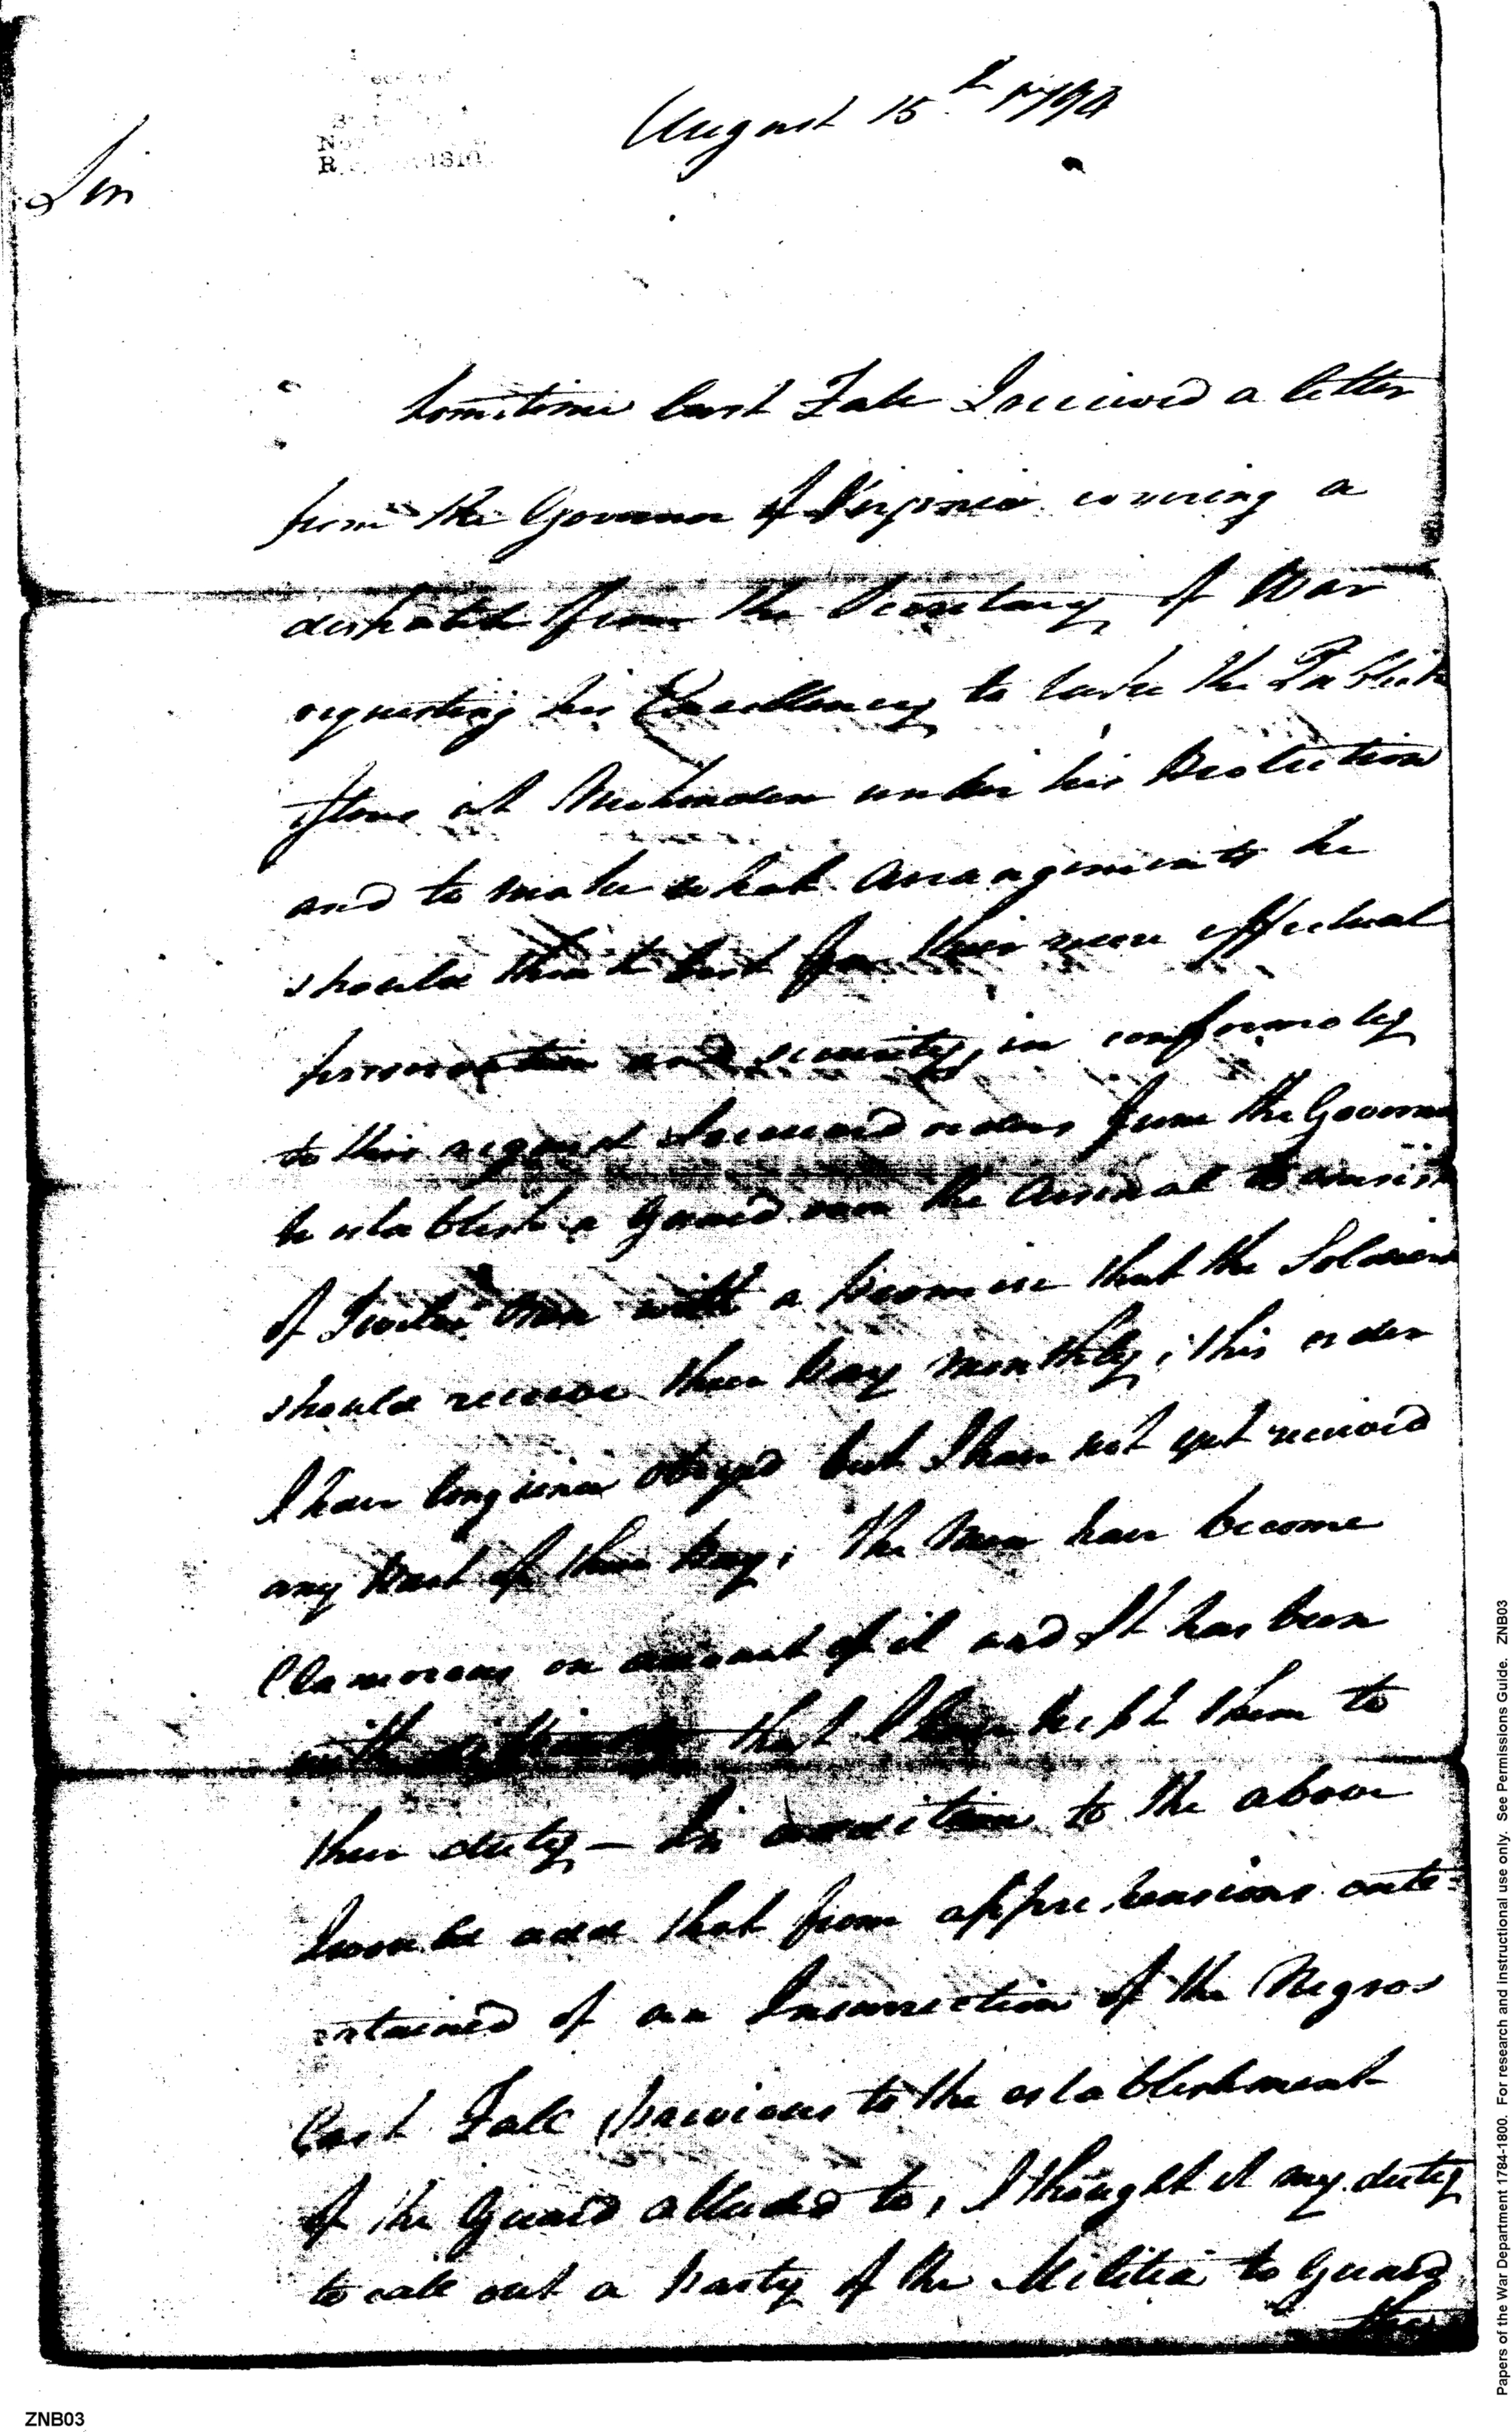 August 15th 1794
Sir
Sometime last Fall I received a letter
from the Governor of Virginia covering a
dispatch from the Secretary of War
requesting his Excellency to take the Publick
Stores at under his Protection
and to make what arrangements he
should think best for their more effectual
preservation and security, in conformity
to this request I received orders from the Governor
to establish a Guard over the Arsenal to consist
of Twelve Men with a promise that the Soldiers
should receive their Pay monthly; this order
I have long since obeyed but I have not yet received
any Part of their Pay; The Men have become
Clamorous on account of it and It has been
with that I have kept them to
their duty — In addition to the above
I would add that from apprehensions ente=
=rtained of an Insurrection of the Negros
last Fall previous to the establishment
of the Guard alluded to, I thought it my duty
to call out a Party of the Militia to Guard
the
Papers of the War Department 1784-1800. For research and instructional use only. See Permissions Guide. ZNB03
ZNB03